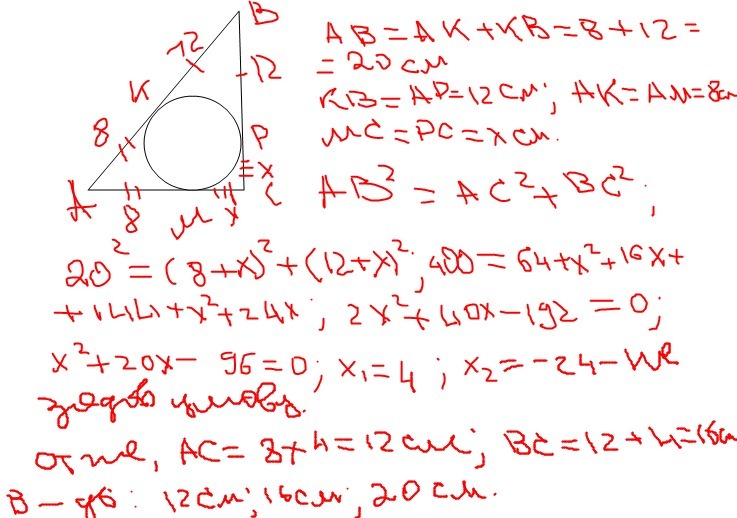 B
12
12
K
8
P
x
A
8
M
x
C
AB = AK + KB = 8 + 12 =
= 20 см
KB = AP = 12 см; AK = AM = 8см
MC = PC = x см.
AB² = AC² + BC²;
20² = (8+x)² + (12+x)²; 400 = 64 + x² + 16x +
+ 144 + x² + 24x; 2x² + 40x - 192 = 0;
x² + 20x - 96 = 0; x₁ = 4; x₂ = -24 - не
задов умову.
отже, AC = 8 + 4 = 12 см; BC = 12 + 4 = 16см
В - дь: 12 см; 16 см; 20 см.